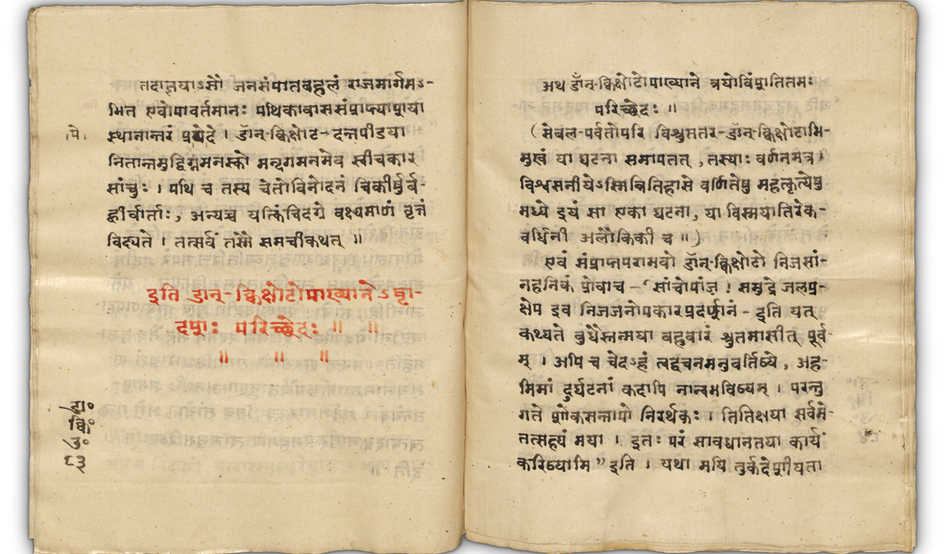 तदाज्ञयाऽसौ जनसंपातबहुलं राजमार्गमऽ-
भित एवोपावर्तमानः पथिकावाससंप्राप्त्यापूाया
स्थानान्तरं प्रपेदे । डॉन-क्विक्षोट-दन्तपीडया
नितान्तमुद्विग्नमनस्को मन्दगमनमेव स्वीचकार
सांचुः । पथि च तस्य चेतोविनोदनं चिकीर्षुर्ब-
ह्वीर्वार्ताः, अन्यच्च यत्किंचिदग्रे वक्ष्यमाणं वृत्तं
विद्यते । तत्सर्वं तस्मै समचीकथत् ॥
इति डान्-क्विक्षोटोपाख्यानेऽष्टा-
दशः परिच्छेदः ॥ ॥
॥ ॥ ॥
पे
डा॰
क्वि॰
उ॰
८३
अथ डॉन्-क्विक्षोटोपाख्याने त्रयोविंशतितमः
परिच्छेदः ॥
(सेबल-पर्वतोपरि विश्रुततर-डॉन्-क्विक्षोटाभि-
मुखं या घटना समापतत्, तस्याः वर्णनमत्र ।
विश्वसनीयेऽस्मिन्नितिहासे वर्णितेषु महत्कृत्येषु
मध्ये इयं सा एका घटना, या विस्मयातिरेक-
वर्धिनी अलौकिकी च ॥)
एवं संप्राप्तपराभवो डॉन्-क्विक्षोटो निजसां-
नहनिकं प्रोवाच - "सांचोपांज़ा ! समुद्रे जलप्र-
क्षेप इव निजजनोपकारप्रदर्शनं - इति यत्
कथ्यते बुधैस्तन्मया बहुवारं श्रुतमासीत् पूर्व-
म् । अपि च चेदऽहं त्वद्वचनमनुवर्तिष्ये, अह-
मिमां दुर्घटनां कदापि नान्वभविष्यम् । परन्तु
गते शोकसन्तापो निरर्थकः । तितिक्षया सर्वमे-
तत्सह्यं मया । इतः परं सावधानतया कार्यं
करिष्यामि" इति । यथा मयि तुर्कदेशीयता